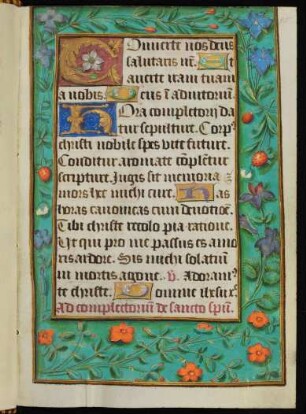 Onuerte nos deus
salutaris nr̄. Et
auerte iram tuam
a nobis. Deus in adiutoriū.
Hora completorij da
tur sepulture. Corpꝰ
christi nobile spes vite future.
Conditur aromate cōplentur
scripture. Jugis sit memoria
mors hec michi cure. Has
horas canonicas cum deuotiōe.
Tibi christe recolo pia ratione.
Ut qui pro me passus es amo
ris ardore. Sis michi solatiū
in mortis agone. v̄. Adoramꝰ
te christe. Domine iħu xp̄e.
Ad complectorium de sancto spiū.